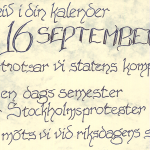 i din kalender
16 SEPTEMBER
motsar vi statens
en dags semester
Stockholmsprotester
möts vi vid riksdagens